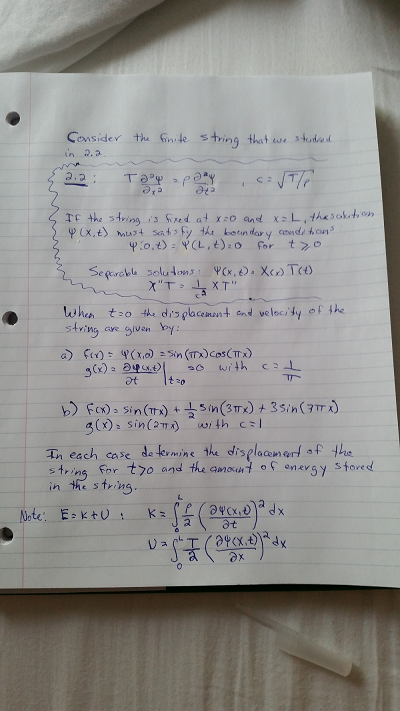 Consider the finite string that we studied
in 2.2.
2.2: T ∂²ψ/∂t² = ρ ∂²ψ/∂t² , c = √T/ρ
If the string is fixed at x=0 and x=L, the solution
ψ(x,t) must satisfy the boundary conditions
ψ(0,t) = ψ(L,t) = 0 for t ≥ 0
Separable solutions: ψ(x,t) = X(x) T(t)
X"T = 1/c² X T"
When t=0 the displacement and velocity of the
string are given by:
a) f(x) = ψ(x,0) = sin(πx)cos(πx)
g(x) = ∂ψ(x,t)/∂t |t=0 = 0 with c = 1/π
b) f(x) = sin(πx) + 1/2 sin(3πx) + 3sin(7πx)
g(x) = sin(2πx) with c=1
In each case determine the displacement of the
string for t>0 and the amount of energy stored
in the string.
Note: E = K+U : K = ∫₀ᴸ ρ/2 (∂ψ(x,t)/∂t)² dx
U = ∫₀ᴸ T/2 (∂ψ(x,t)/∂x)² dx